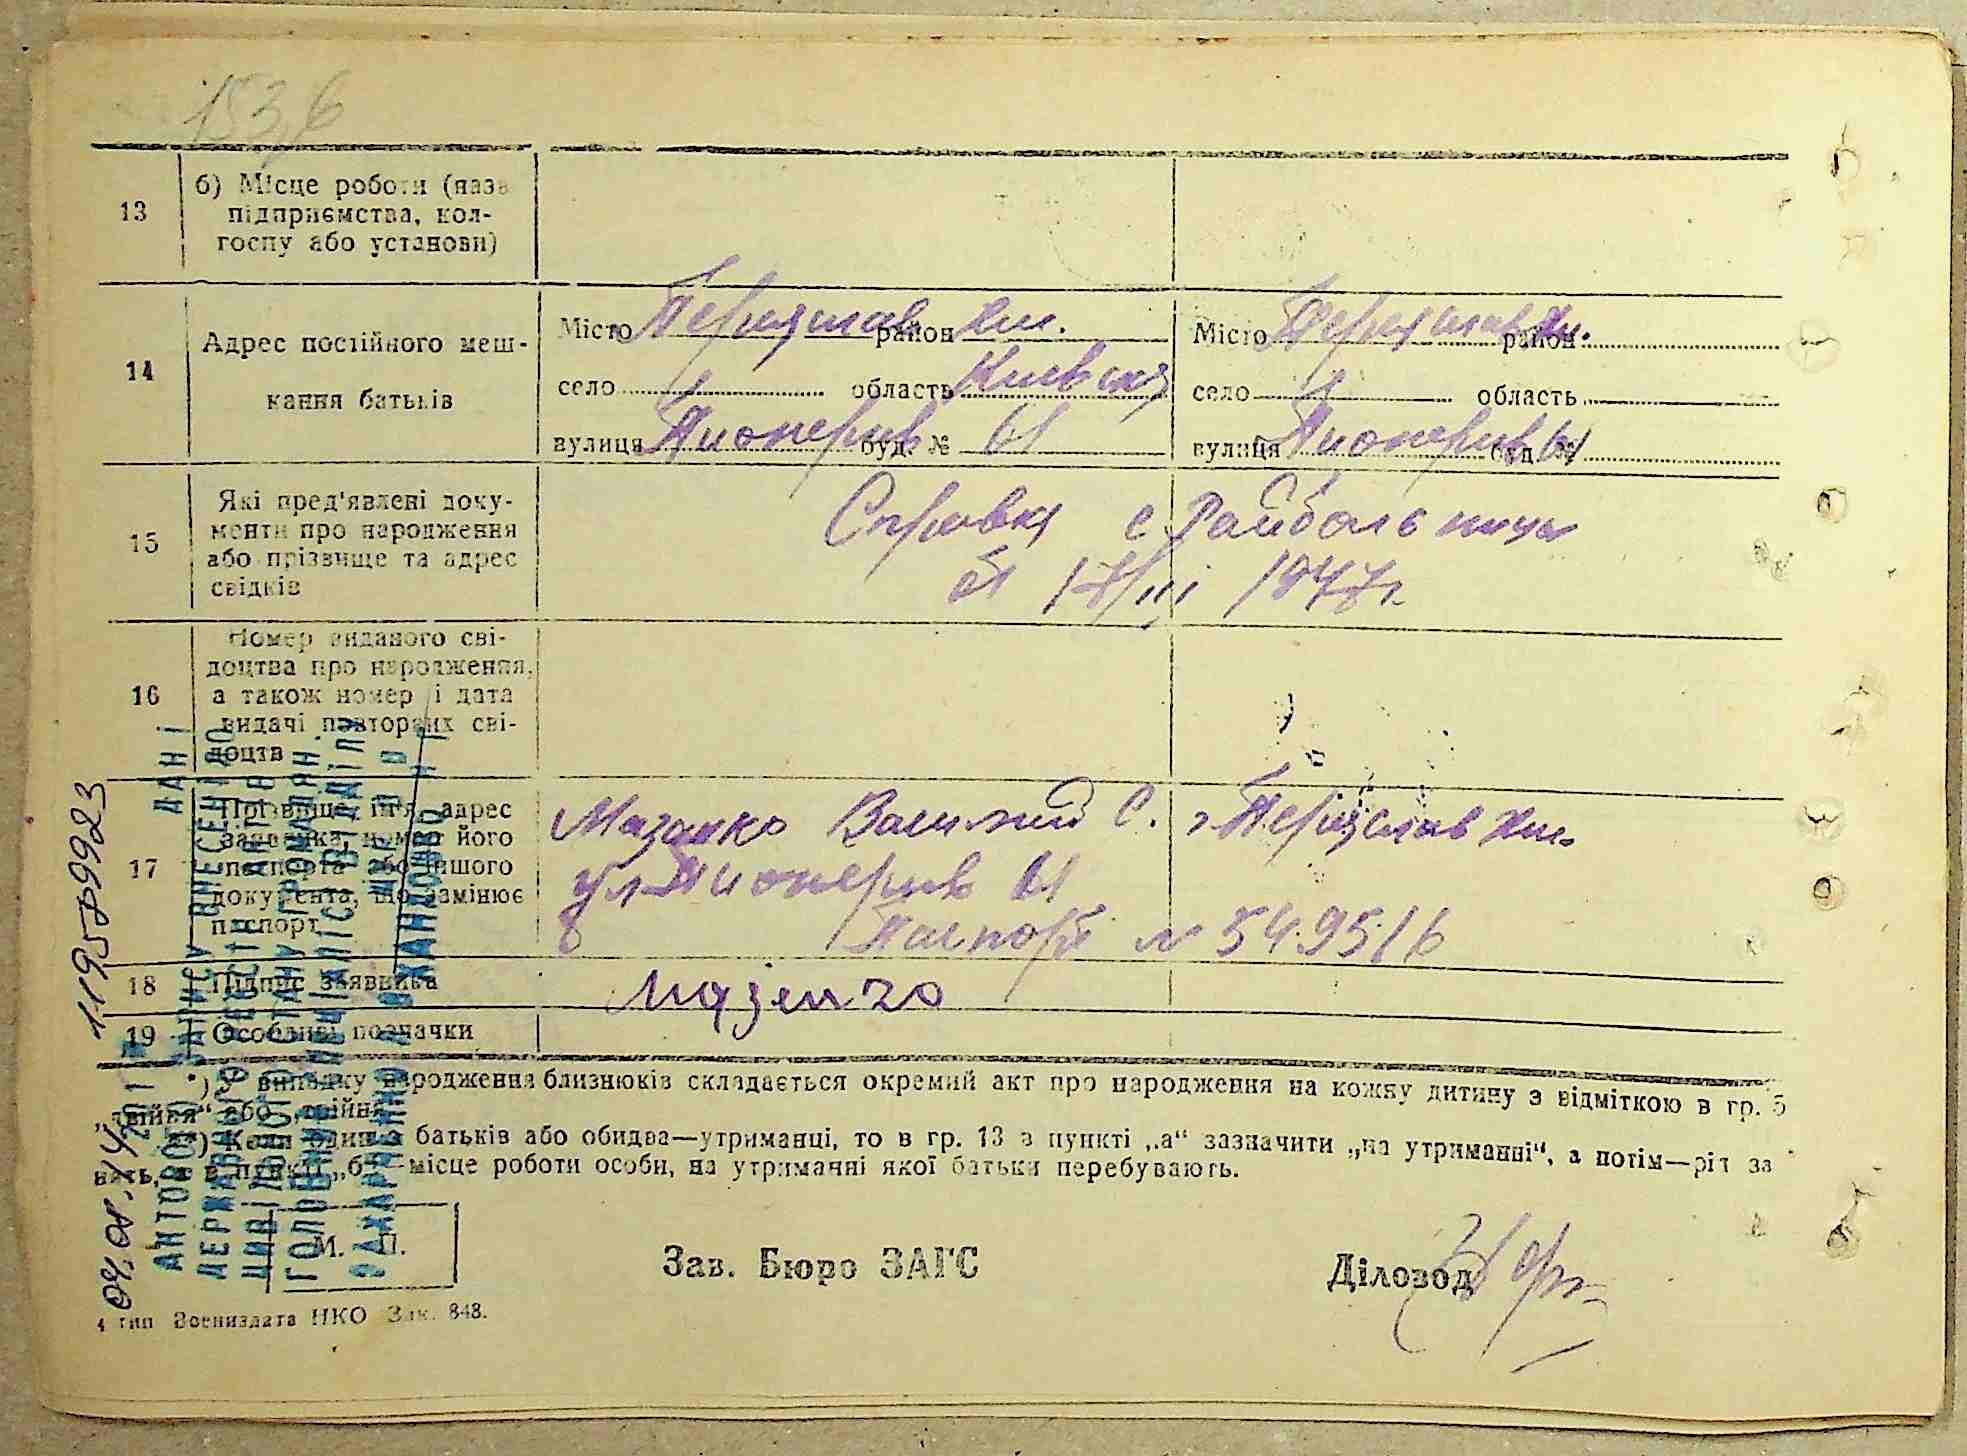 153,6
13
б) Місце роботи (назв
підприємства, кол-
госпу або установи)
14
Адрес постійного меш-
кання батьків
Місто Переяслав район Хм.
село область Киевская
вулиця Пионерив буд. № 61
Місто Переяслав Хм. район
село область
вулиця Пионерив буд № 61
15
Які пред'явлені доку-
менти про народження
або прізвище та адрес
свідків
Справка с Райбольницы
от 17/III 1947г.
16
Номер виданого сві-
доцтва про народження,
а також номер і дата
видачі повторних сві-
доцтв
17
Прізвище, ім'я, адрес
заявника, номер його
паспорта або іншого
документа, що замінює
паспорт
Мазанко Василий С. г. Переяслав Хм.
ул Пионерив 61
Паспорт № 549516
18
Підпис заявника
19
Особливі позначки
*) У випадку народження близнюків складається окремий акт про народження на кожну дитину з відміткою в гр. 5
„двійня“ або „трійня
**) Коли один з батьків або обидва—утриманці, то в гр. 13 в пункті „а“ зазначити „на утриманні“, а потім—рід за
нять, а в пункті „б“—місце роботи особи, на утриманні якої батьки перебувають.
М. П.
Зав. Бюро ЗАГС
Діловод
4 тип Воениздата НКО Зак. 848.
ДАНІ
ВНЕСЕНІ ДО
ДЕРЖАВНОГО РЕЄСТРУ
ГРОМАДЯН